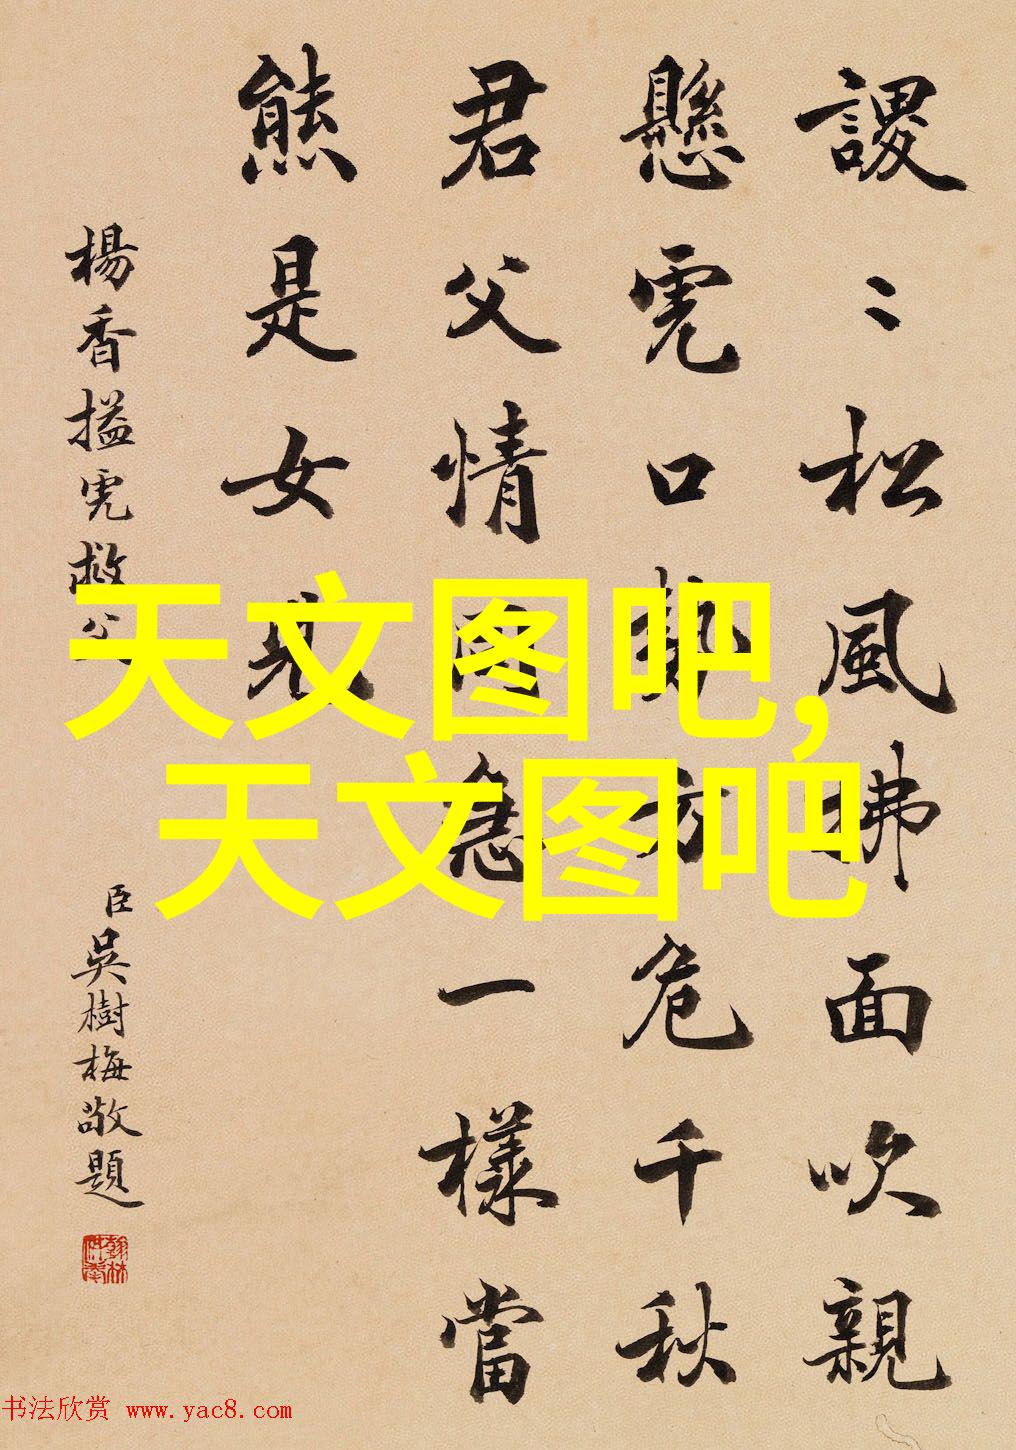 謖〻松風拂面吹親
懸虎口勢方危千秋
君父情同急一樣當
熊是女兒
楊香搤虎救父
臣吳樹梅敬題
天文图吧,
天文图吧
书法欣赏 www.yac8.com